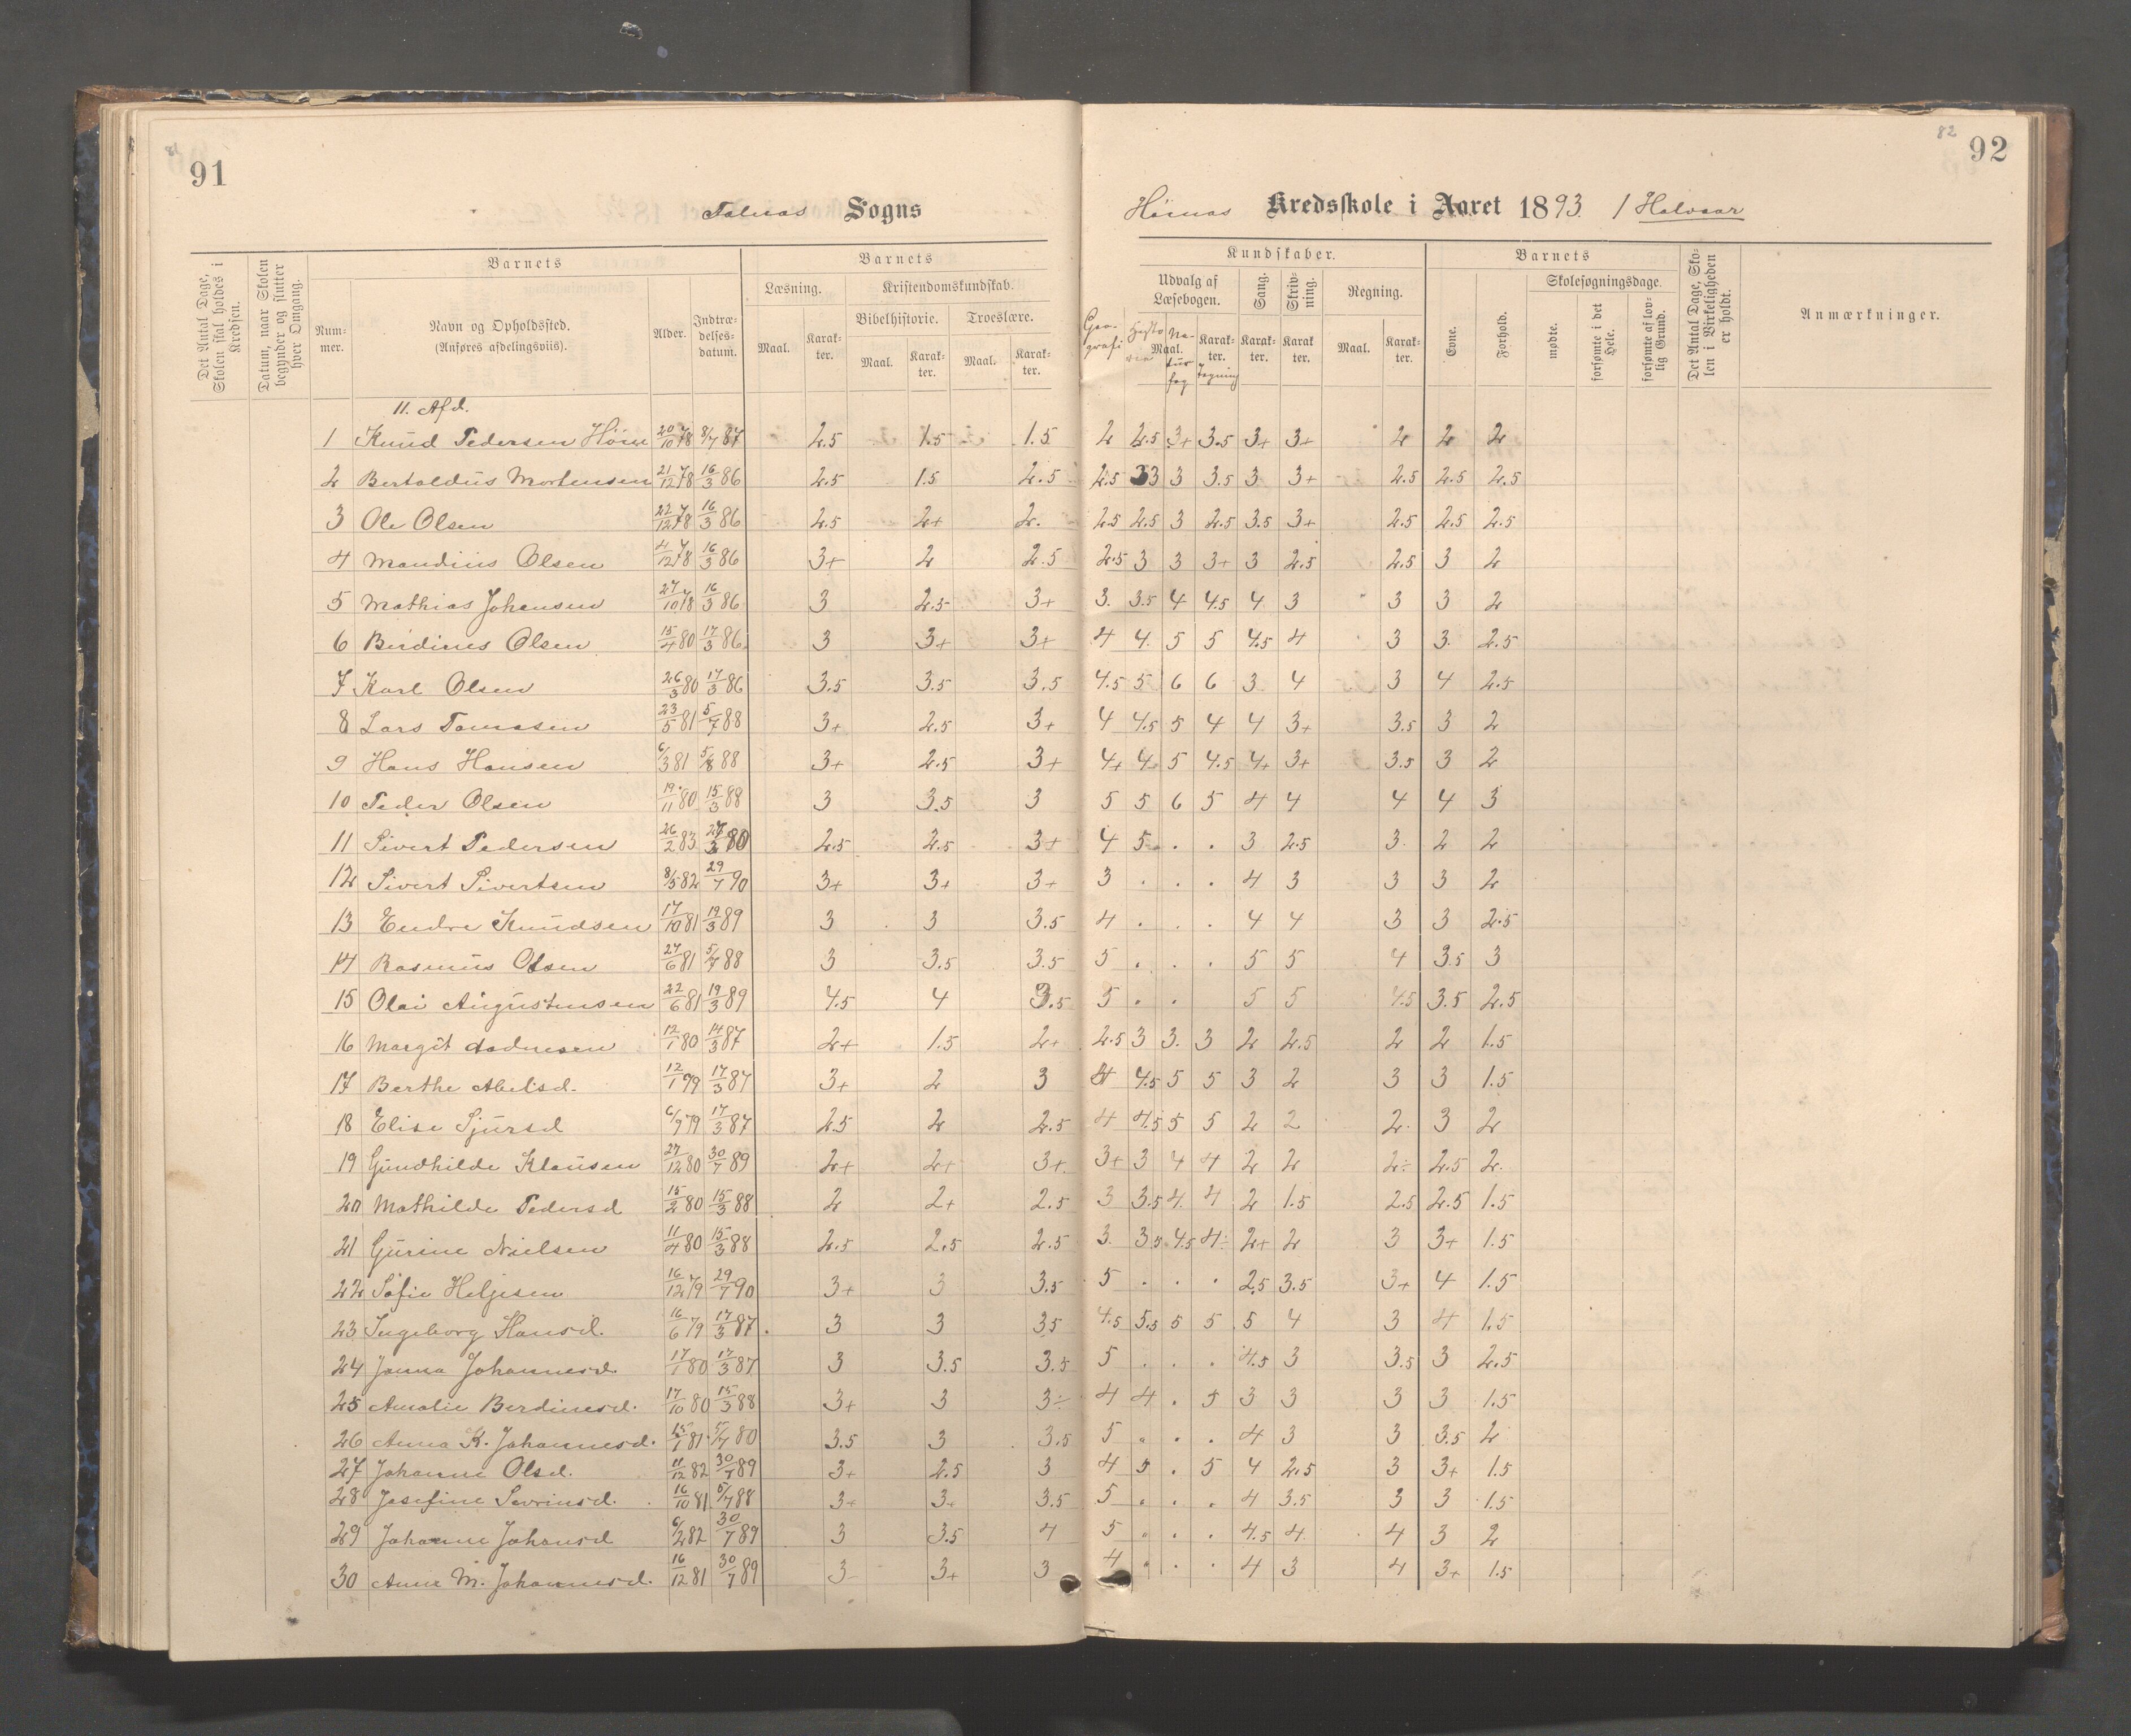 81
91
82
92
Sogns
Kredsskole i Aaret 1893. 1 Halvaar
Det Antal Dage, Skolen skal holdes i Kredsen.
Datum, naar Skolen begynder og slutter hver Omgang.
Barnets
Nummer.
Navn og Opholdssted.
(Anføres afdelingsviis).
Alder.
Indtrædelsesdatum.
Barnets
Læsning.
Maal.
Karakter.
Kristendomskundskab.
Bibelhistorie.
Maal.
Karakter.
Troeslære.
Maal.
Karakter.
Kundskaber.
Udvalg af Læsebogen.
Geografi
Historie
Maal.
Naturfag
Karakter.
Tegning
Sang.
Karakter.
Skrivning.
Karakter
Regning.
Maal.
Karakter.
Barnets
Evne.
Forhold.
Skolesøgningsdage.
mødte.
forsømte i det Hele.
forsømte af lovlig Grund.
Det Antal Dage, Skolen i Virkeligheden er holdt.
Anmærkninger.
11. Afd.
1 Knud Pedersen 20/10 78 8/7 87 2.5 1.5 1.5 2 2.5 3+ 3.5 3+ 3+ 2 2 2
2 Bertoldus Mortensen 21/12 78 16/3 86 2.5 1.5 2.5 2.5 3 3 3.5 3 3+ 2.5 2.5 2.5
3 Ole Olsen 22/12 78 16/3 86 2.5 2+ 2. 2.5 2.5 3 2.5 3.5 3+ 2.5 2.5 2.5
4 Mandius Olsen 4/12 78 16/3 86 3+ 2 2.5 2.5 3 3 3+ 3 2.5 2.5 3 2
5 Mathias Johansen 27/10 78 16/3 86 3 2.5 3+ 3. 3.5 4 4.5 4 3 3 3 2
6 Berdines Olsen 15/4 80 17/3 86 3 3+ 3+ 4 4. 5 5 4.5 4 3 3. 2.5
7 Karl Olsen 26/3 80 17/3 86 3.5 3.5 3.5 4.5 5 6 6 3 4 3 4 2.5
8 Lars Tomasen 23/5 81 5/7 88 3+ 2.5 3+ 4 4.5 5 4 4 3+ 3.5 3 2
9 Hans Hansen 6/3 81 5/8 88 3+ 2.5 3+ 4+ 4. 5 4.5 4+ 3+ 3.5 3 2
10 Peder Olsen 19/11 80 15/3 88 3 3.5 3 5 5 6 5 4 4 4 4 3
11 Sivert Pedersen 26/2 83 2.5 2.5 3+ 4 5 . . 3 2.5 3. 2 2
12 Sivert Sivertsen 8/5 82 29/7 90 3+ 3+ 3+ 3 . . . 4 3 3 3 2
13 Endre Knudsen 17/10 81 19/3 89 3 3 3.5 4 . . . 4 4 3 3 2.5
14 Rasmus Olsen 27/6 81 5/7 88 3 3.5 3.5 5 . . . 5 5 4 3.5 3
15 Olai Augustensen 22/6 81 19/3 89 4.5 4 3.5 5 . . 5 5 4.5 3.5 2.5
16 Margit 12/1 80 14/3 87 2+ 1.5 2+ 2.5 3 3. 3 2 2.5 2 2 1.5
17 Berthe Abelsd. 12/1 79 17/3 87 3+ 2 3 4 4.5 5 5 3 2 3 3 1.5
18 Elise Sjursd 6/9 79 17/3 87 2.5 2 2.5 4 4.5 5 5 2 2 2. 3 2
19 Gundhilde Klausen 27/12 80 30/7 89 2+ 2+ 3+ 3+ 3 4 4 2 2 2÷ 2.5 2.
20 Mathilde Pedersd 15/2 80 15/3 88 2 2+ 2.5 3 3.5 4. 4 2 1.5 2.5 2.5 1.5
21 Gurine Nielsen 11/4 80 15/3 88 2.5 2.5 2.5 3. 3.5 4.5 4÷ 2+ 2 3 3+ 1.5
22 Sofie Helgesen 16/12 79 29/7 90 3+ 3 3.5 5 . . . 2.5 3.5 3+ 4 1.5
23 Ingeborg Hansd. 16/6 79 17/3 87. 3 3 35 4.5 5.5 5 5 5 4 3 4 1.5
24 Janna Johannesd. 17/1 80 17/3 87 3 3.5 3.5 5 . . . 4.5 3 3.5 3 2.5
25 Amalie Berdinesd. 17/10 80 15/3 88 3+ 3 3÷ 4 4 . 5 3 3 3 3 1.5
26 Anna K. Johannesd. 15/1 81 5/7 80 3.5 3 3.5 5 . . . 4 3 3 3.5 2
27 Johanne Olsd. 11/12 82 30/7 89 3+ 2.5 3 4 5 . 5 4 2.5 3 3+ 1.5
28 Josefine Sevrinsd. 16/10 81 5/7 88 3+ 3+ 3.5 5 . . . 4 3.5 3 3 1.5
29 Johanne Johansd 6/2 82 30/7 89 3 3.5 4 5 . . . 4.5 4 4 3 2
30 Anne M. Johannesd. 16/12 81 30/7 89 3 3+ 3 4 . . . 4 3 4 3+ 1.5